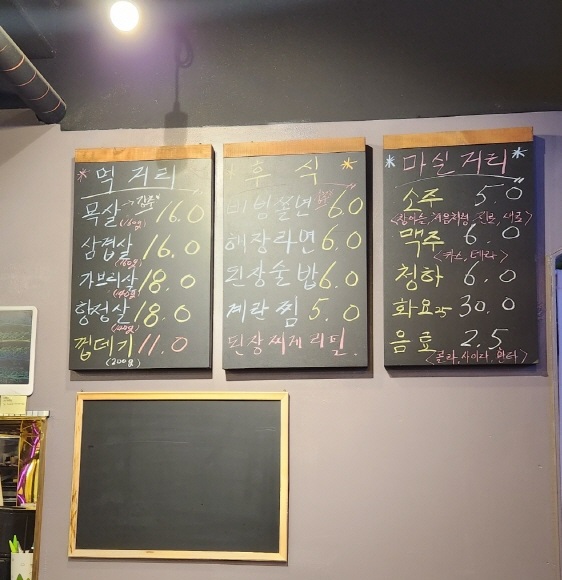 * 먹거리
목살 16.0
(160g)
삼겹살 16.0
(160g)
가브리살 18.0
항정살 18.0
껍데기 11.0
(200g)
후식 *
비빔쫄면 6.0
해장라면 6.0
된장술밥 6.0
계란찜 5.0
된장찌개 리필.
* 마실거리 *
소주 5.0
<참이슬, 처음처럼, 진로, 새로>
맥주 6.0
<카스, 테라>
청하 6.0
화요25 30.0
음료 2.5
<콜라, 사이다, 환타>